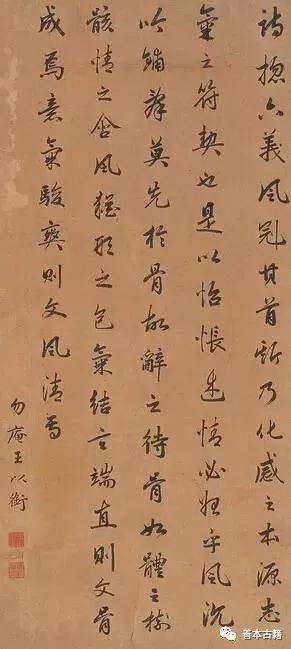 詩揔六義風冠其首斯乃化感之本源志
氣之符契也是以怊悵述情必始乎風沉
吟鋪辭莫先於骨故辭之待骨如體之樹
骸情之含風猶形之包氣結言端直則文骨
成焉意氣駿爽則文風清焉
勿庵王以銜
善本古籍